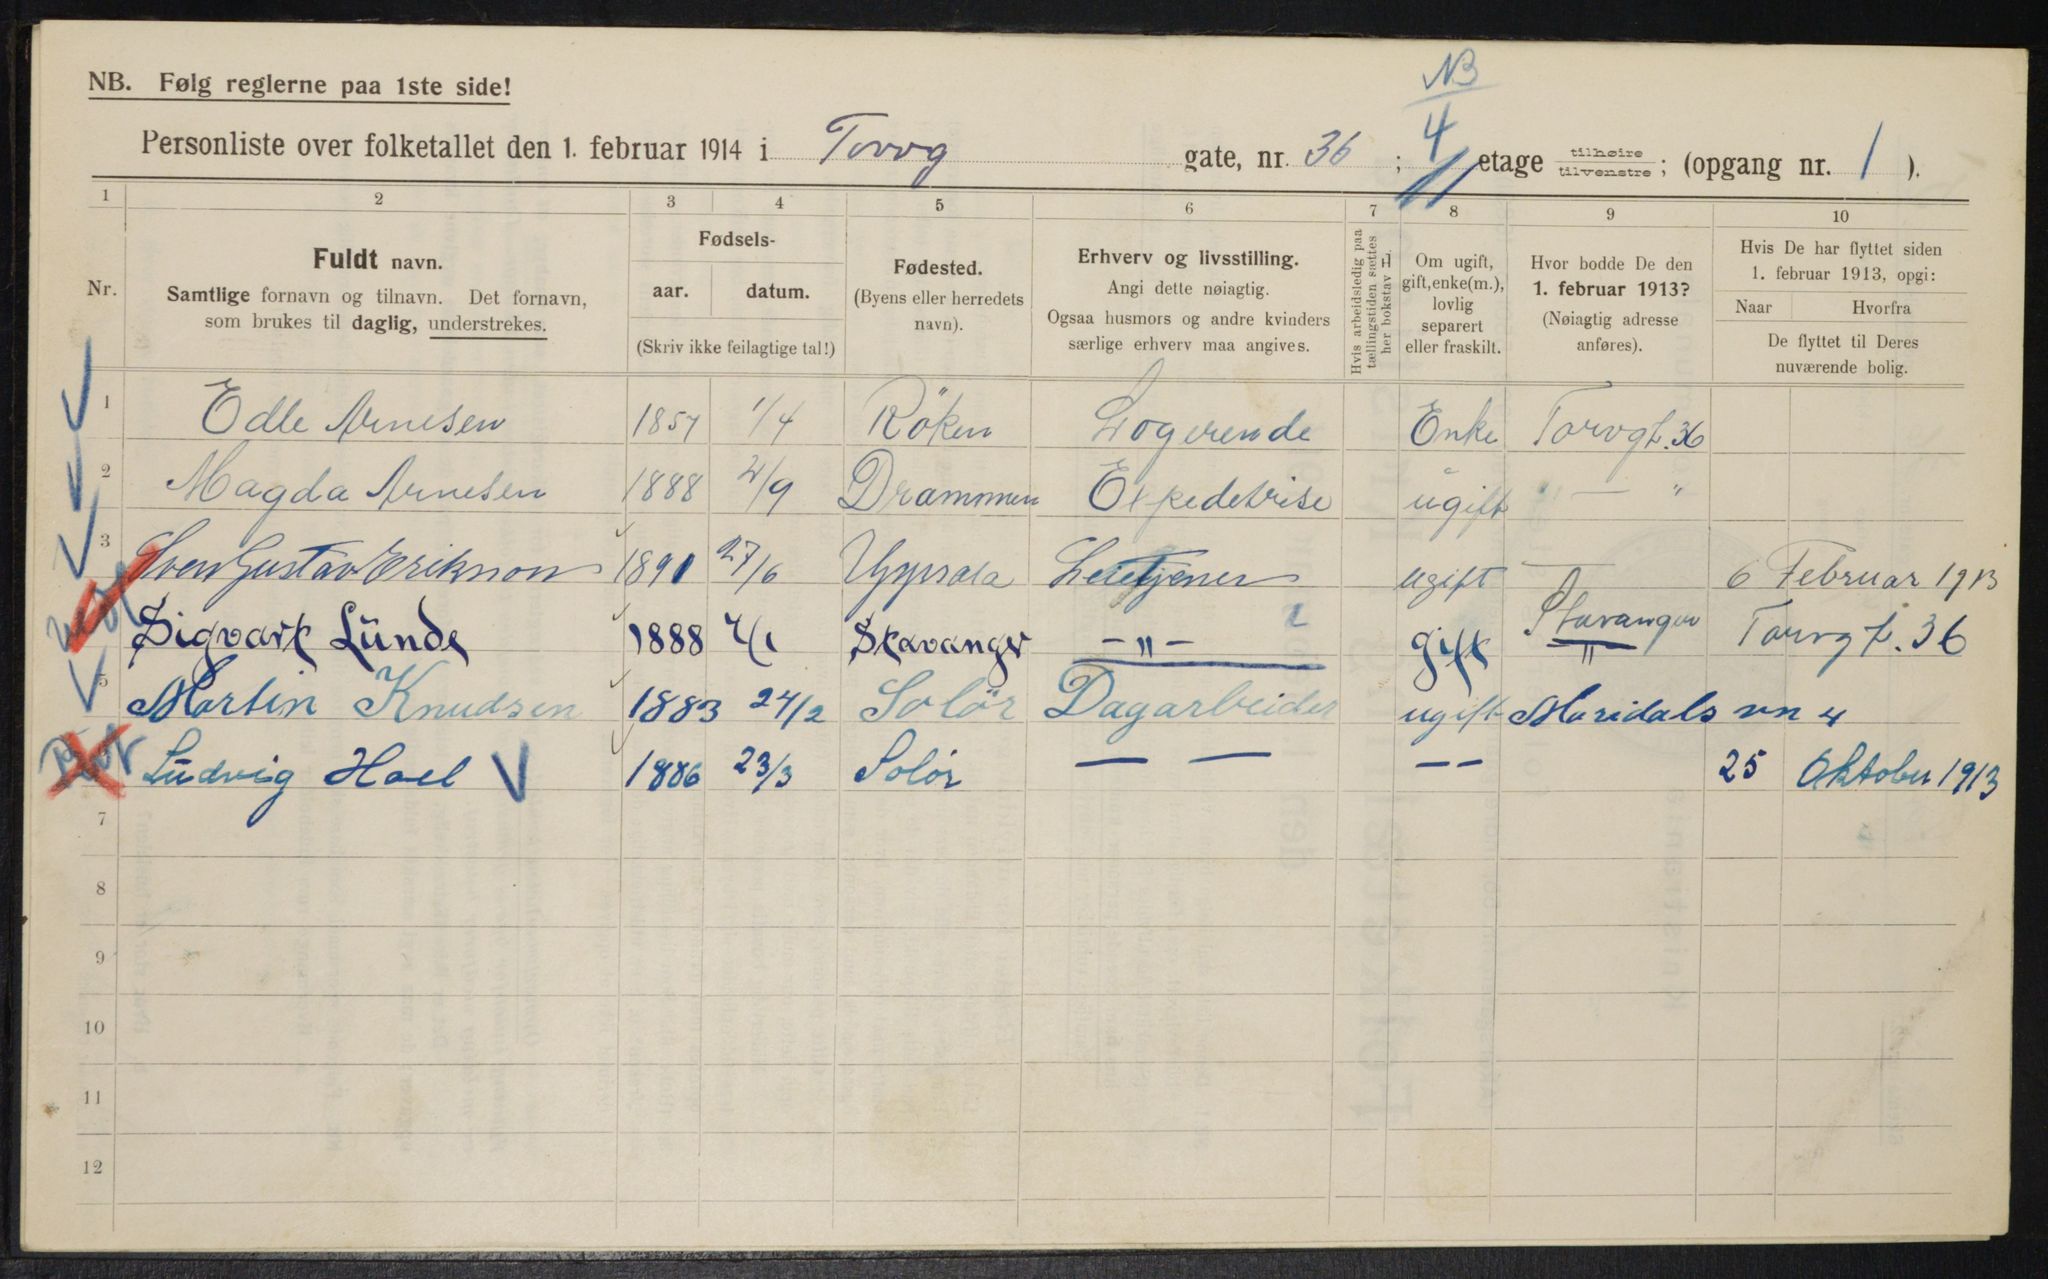 NB. Følg reglerne paa 1ste side!
NB
4
Personliste over folketallet den 1. februar 1914 i Torvg gate, nr. 36 ; etage tilhøire tilvenstre ; (opgang nr. 1 ).
1 2 3 4 5 6 7 8 9 10
Nr.
Fuldt navn.
Samtlige fornavn og tilnavn. Det fornavn,
som brukes til daglig, understrekes.
Fødsels-
aar. datum.
(Skriv ikke feilagtige tal!)
Fødested.
(Byens eller herredets
navn).
Erhverv og livsstilling.
Angi dette nøiagtig.
Ogsaa husmors og andre kvinders
særlige erhverv maa angives.
Hvis arbeidsledig paa
tællingstiden sættes
her bokstav L
Om ugift,
gift, enke(m.),
lovlig
separert
eller fraskilt.
Hvor bodde De den
1. februar 1913?
(Nøiagtig adresse
anføres).
Hvis De har flyttet siden
1. februar 1913, opgi:
Naar Hvorfra
De flyttet til Deres
nuværende bolig.
1 Edle Arnesen 1857 1/4 Röken Logerende Enke Torvgt. 36
2 Magda Arnesen 1888 2/9 Drammen Expedetrise ugift " — "
3 Sven Gustav Erikson 1891 27/6 Uppsala ugift 6 Februar 1913
Sigvart Lünde 1888 2/1 Stavanger — " — gift Stavanger " Torvgt. 36
5 Martin Knudsen 1883 24/2 Solör Dagarbeider ugift Maridals vn 4
Ludvig Hoel 1886 23/3 Solör — — — — 25 Oktober 1913
7
8
9
10
11
12